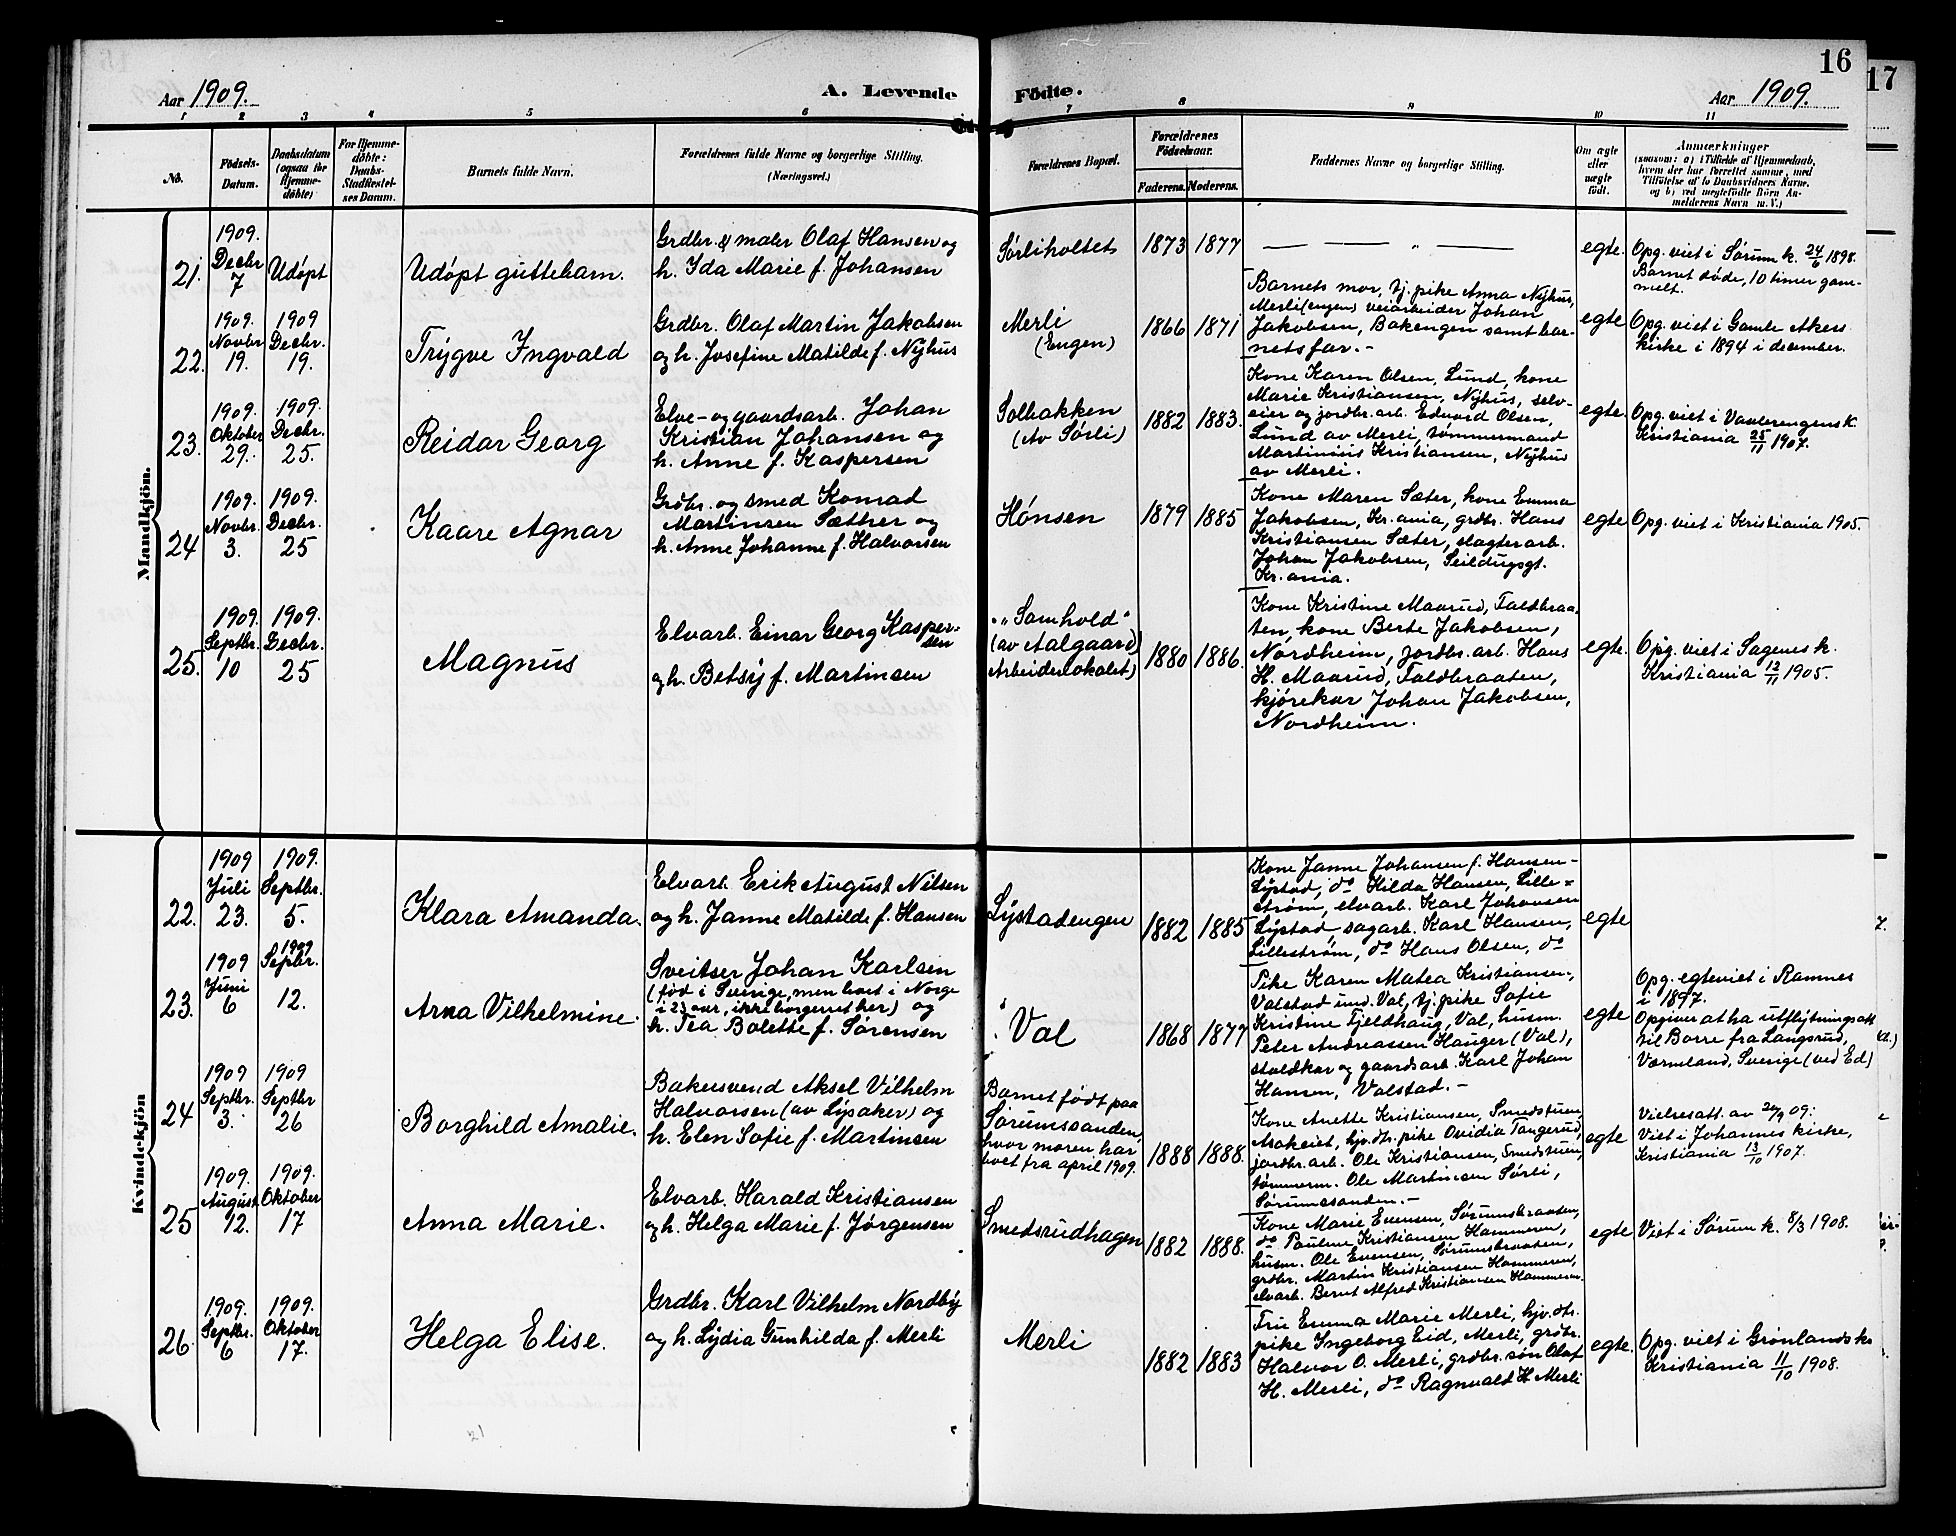 16
17
Aar 1909.
A. Levende
Födte.
Aar 1909.
1 2 3 4 5 6 7 8 9 10 11
No.
Födsels-
Datum.
Daabsdatum
(ogsaa for
Hjemme-
döbte)
For Hjemme-
döbte:
Daabs-
Stadfæstel-
ses Datum.
Barnets fulde Navn.
Forældrenes fulde Navne og borgerlige Stilling.
(Næringsvei.)
Forældrenes Bopæl.
Forældrenes
Födselsaar.
Faderens. Moderens.
Faddernes Navne og borgerlige Stilling.
Om ægte
eller
uægte
födt.
Anmærkninger
(saasom: a) i Tilfælde af Hjemmedaab,
hvem der har forrettet samme, med
Tilföielse af to Daabsvidners Navne,
og b) ved uægtefödte Börn An-
melderens Navn m. V.)
Mandkjön.
21.
1909.
Decbr
7
Udöpt
Udöpt guttebarn.
Grdbr. & maler Olaf Hansen og
h. Ida Marie f. Johansen
Sørliholtet
1873 1877
— — " — —
egte.
Opg. viet i Sørum k. 24/6 1898.
Barnet døde, 10 timer gam-
melt.
22.
1909.
Novbr
19.
1909
Decbr.
19.
Trygve Ingvald
Grdbr. Olaf Martin Jakobsen
og h. Josefine Matilde f. Nyhus
Merli
(Engen)
1866 1871
Barnets mor, tj. pike Anna Nyhus,
Merli (engen) veiarbeider Johan
Jakobsen, Bakengen samt bar-
netsfar.-
egte
Opg. viet i Gamle Akers
kirke i 1894 i december.
23.
1909.
Oktober
29.
1909.
Decbr.
25.
Reidar Georg
Elve- og gaardsarb. Johan
Kristian Johansen og
h. Anne f. Kaspersen
Solbakken
(Av Sørli)
1882 1883.
Kone Karen Olsen, Lund, kone
Marie Kristiansen, Nyhus, selv-
eier og jordbr. arb. Edvard Olsen,
Lund av Merli, tømmermand
Martinius Kristiansen, Nyhus
av Merli.
egte.
Opg. viet i Vaalerengens k.
Kristiania 25/11 1907.
24
1909.
Novbr.
3.
1909.
Decbr.
25
Kaare Agnar
Grdbr. og smed Konrad
Martinsen Sæther og
h. Anne Johanne f. Halvorsen
Hønsen
1879 1885
Kone Maren Sæter, kone Emma
Jakobsen, Kr.ania, grdbr. Hans
Kristiansen Sæter, slagterarb.
Johan Jakobsen, Seildugsgt.
Kr.ania.
egte
Opg. viet i Kristiania 1905.
25.
1909.
Septbr.
10
1909.
Decbr.
25
Magnus
Elvarb. Einar Georg Kasper-
sen
og h. Betsy f. Martinsen
"Samhold"
(av Aalgaard)
Arbeiderlokalet)
1880 1886.
Kone Kristine Maarud, Faldbraa-
ten, kone Berte Jakobsen,
Nordheim, jordbr. arb. Hans
H. Maarud, Faldbraaten,
kjørekar Johan Jakobsen,
Nordheim.
egte.
Opg. viet i Sagenes k.
Kristiania 12/11 1905.
Kvindekjön
22.
1909
Juli
23.
1909.
Septbr.
5.
Klara Amanda.
Elvarb. Erik August Nilsen
og h. Janne Matilde f. Hansen
Lystadengen
1882 1885
Kone Janne Johansen f. Hansen-
Lystad, do Hilda Hansen, Lille=
strøm, elvarb. Karl Johansen
Lystad, sagarb. Karl Hansen,
Lillestrøm, do Hans Olsen, do
egte
23.
1909
Juni
6
1909
Septbr.
12.
Arna Vilhelmine.
Sveitser Johan Karlsen
(fød i Sverige, men boet i Norge
i 23 aar, ikke borgerret her) og
h. Tea Bolette f. Sørensen
Val
1868 1877
Pike Karen Matea Kristiansen,
Valstad und. Val, tj. pike Sofie
Kristine Fjeldhaug, Val, husm.
Peter Andreassen Hauger (Val),
staldkar og gaardsarb. Karl Johan
Hansen, Valstad.-
egte
Opg. egteviet i Ramnes
i 1897.
Opgiver at ha utflytningsatt
til Borre fra Langsrud,
Værmland, Sverige (ved Ed)
24
1909
Septbr.
3.
1909
Septbr
26
Borghild Amalie.
Bakersvend Aksel Vilhelm
Halvorsen (av Lysaker) og
h. Elen Sofie f. Martinsen
Barnet født paa
Sørumssanden,
hvor moren har
boet fra april 1909.
1888 1888.
Kone Anette Kristiansen, Smedstuen,
Asakeiet, hjv. dtr. pike Ovidia Tangerud,
jordbr. arb. Ole Kristiansen, Smedstuen,
tømmerm. Ole Martinsen Sørli,
Sørumssanden.-
egte
Vielsesatt. av 20/9 09:
Viet i Johannes kirke,
Kristiania 13/10 1907.
25
1909.
August
12.
1909.
Oktober
17
Anna Marie.
Elvarb. Harald Kristiansen
og h. Helga Marie f. Jørgensen
Smedsrudhagen
1882 1888.
Kone Marie Evensen, Sørumsbraaten,
do Pauline Kristiansen Hammeren,
husm. Ole Evensen, Sørumsbraaten,
grdbr. Martin Kristiansen Hammeren,
elvarb. Bernt Alfred Kristiansen Hammeren.
egte
Viet i Sørum k. 8/3 1908.
26.
1909.
Septbr.
6
1909.
Oktober
17.
Helga Elise.
Grdbr. Karl Vilhelm Nordby
og h. Lydia Gunhilda f. Merli
Merli
1882 1883
Fru Emma Marie Merli, hjv. dtr.
pike Ingeborg Eid, Merli, grdbr.
Halvor O. Merli, grdbr. søn Olaf
H. Merli, do Ragnvald H Merli
egte.
Opg. viet i Grønlands k.
Kristiania 11/10 1908.